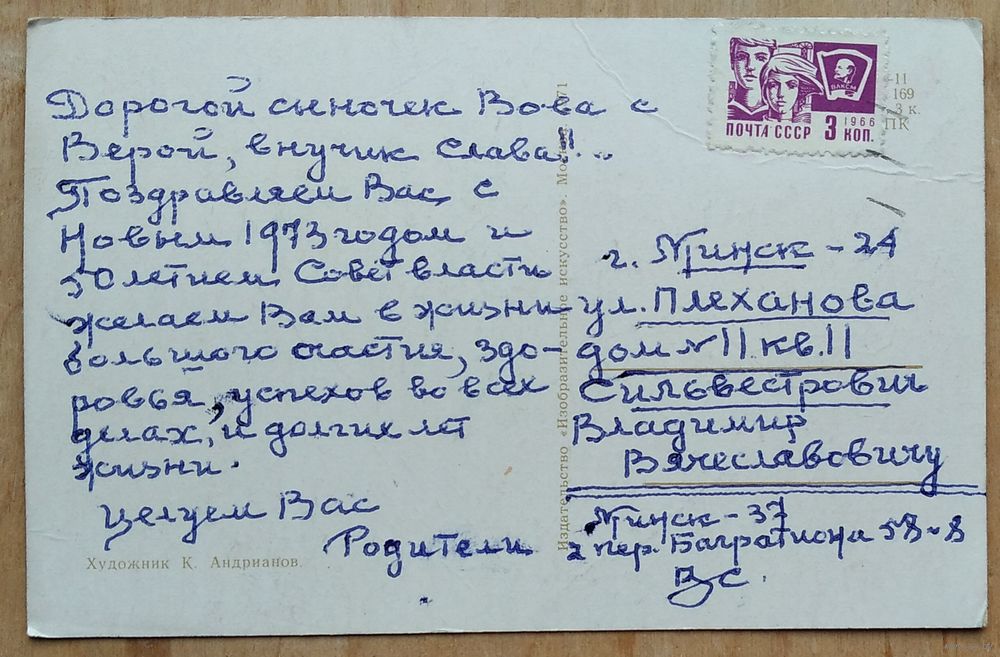 Дорогой сыночек Вова с
Верой, внучик Слава!!..
Поздравляем Вас с
Новым 1973 годом и
50 летием Совет власти
желаем Вам в жизни
большого счастия, здо-
ровья, успехов во всех
делах, и долгих лет
жизни.
целуем Вас
Родители
Художник К. Андрианов.
Издательство «Изобразительное искусство». 71
ВЛКСМ
1966
ПОЧТА СССР 3 КОП.
11
169
3 к.
ПК
г. Минск - 24
ул. Плеханова
дом № 11 кв. 11
Сильвестрович
Владимир
Вячеславовичу
Минск - 37
2 пер. Багратиона 58-8
ВС.